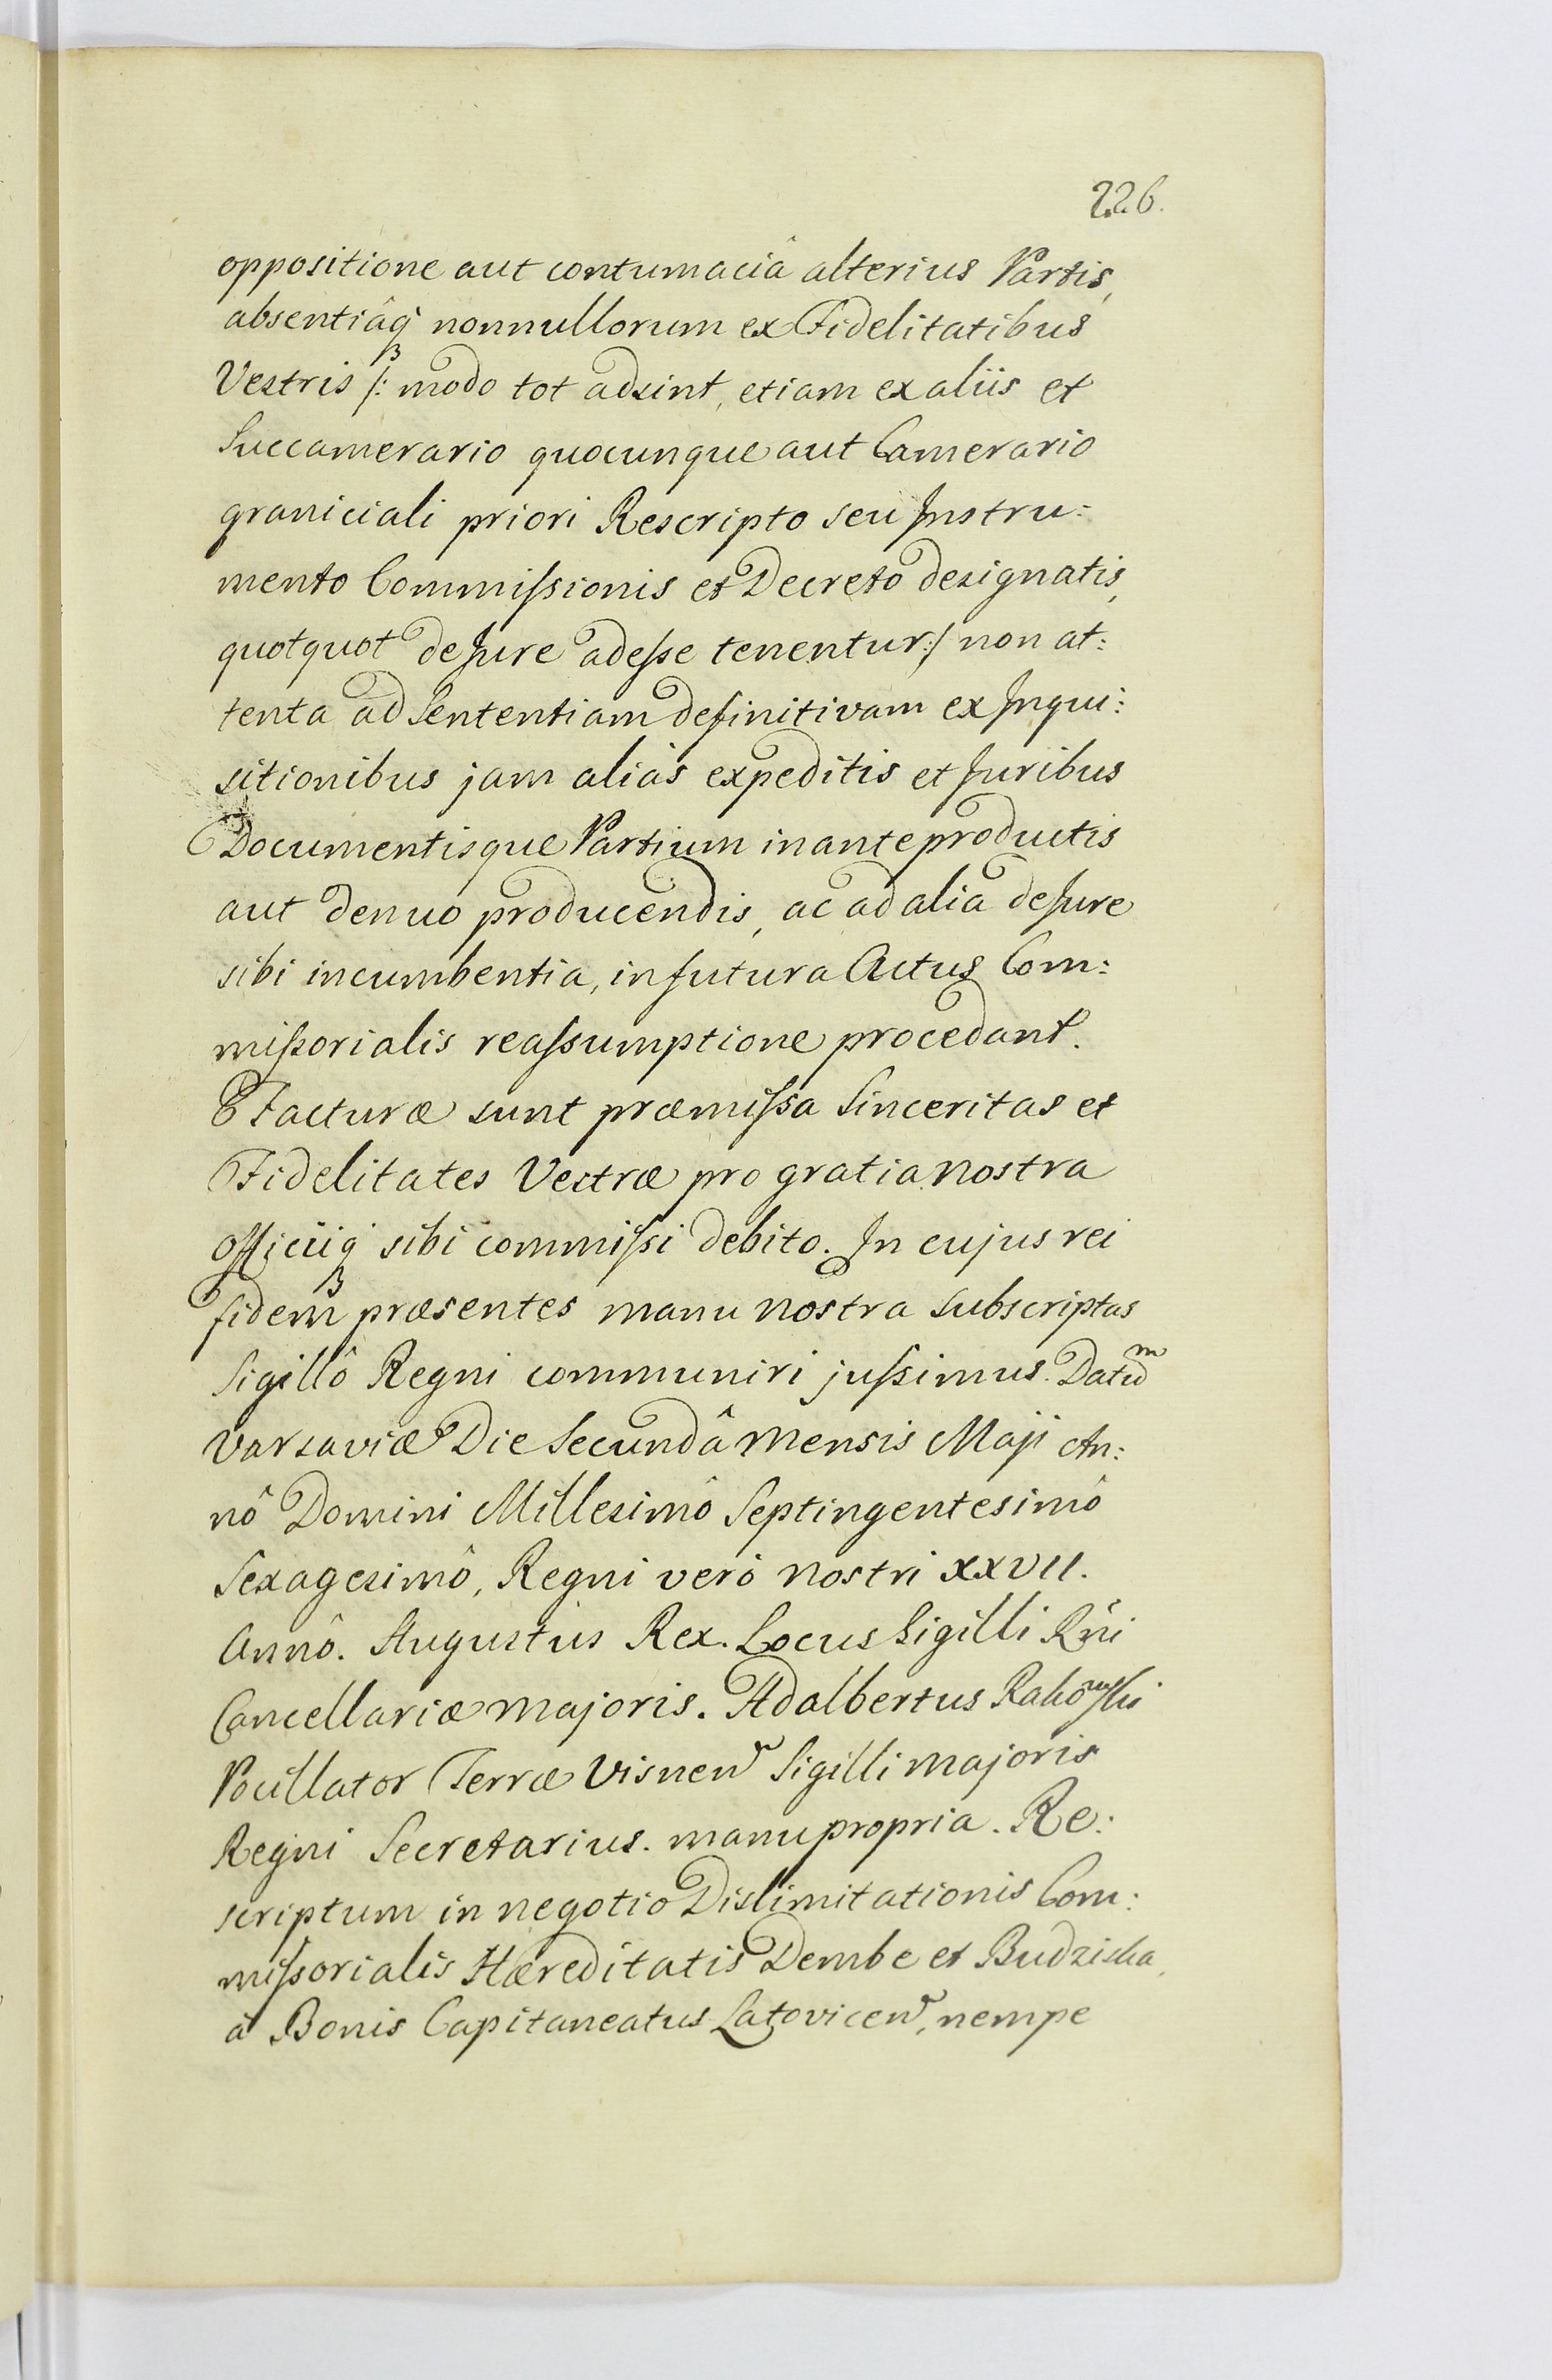 226.
oppositione aut contumaciâ alterius Partis,
absentiâq3 nonnullorum ex Fidelitatibus
Vestris /: modo tot adsint, etiam ex aliis et
Succamerario quocunque aut Camerario
graniciali priori Rescripto seu Instru:
mento Commißionis et Decreto designatis,
quotquot de Jure adeße tenentur :/ non at:
tenta ad Sententiam definitivam ex Inqui:
sitionibus jam aliàs expeditis et Juribus
Documentisque Partium in ante productis
aut denuo producendis, ac ad alia de Jure
sibi incumbentia, in futura Actus Com:
mißorialis reaßumptione procedant.
Facturæ sunt præmißa Sinceritas et
Fidelitates Vestræ pro gratia nostra
officiiq3 sibi commißi debito. In cujus rei
fidem præsentes manu nostra subscriptas
Sigillô Regni communiri jußimus. Datum
Varsaviæ Die Secundâ Mensis Maji An:
nô Domini Millesimô Septingentesimô
Sexagesimô, Regni verò nostri XXVII.
Annô. Augustus Rex. Locus Sigilli Rni
Cancellariæ majoris. Adalbertus Rakowski
Pocillator Terræ Visnen Sigilli majoris
Regni Secretarius. manu propria. Re:
scriptum in negotio Dislimitationis Com:
mißorialis Hæreditatis Dembe et Budziska,
à Bonis Capitaneatus Latovicen, nempe